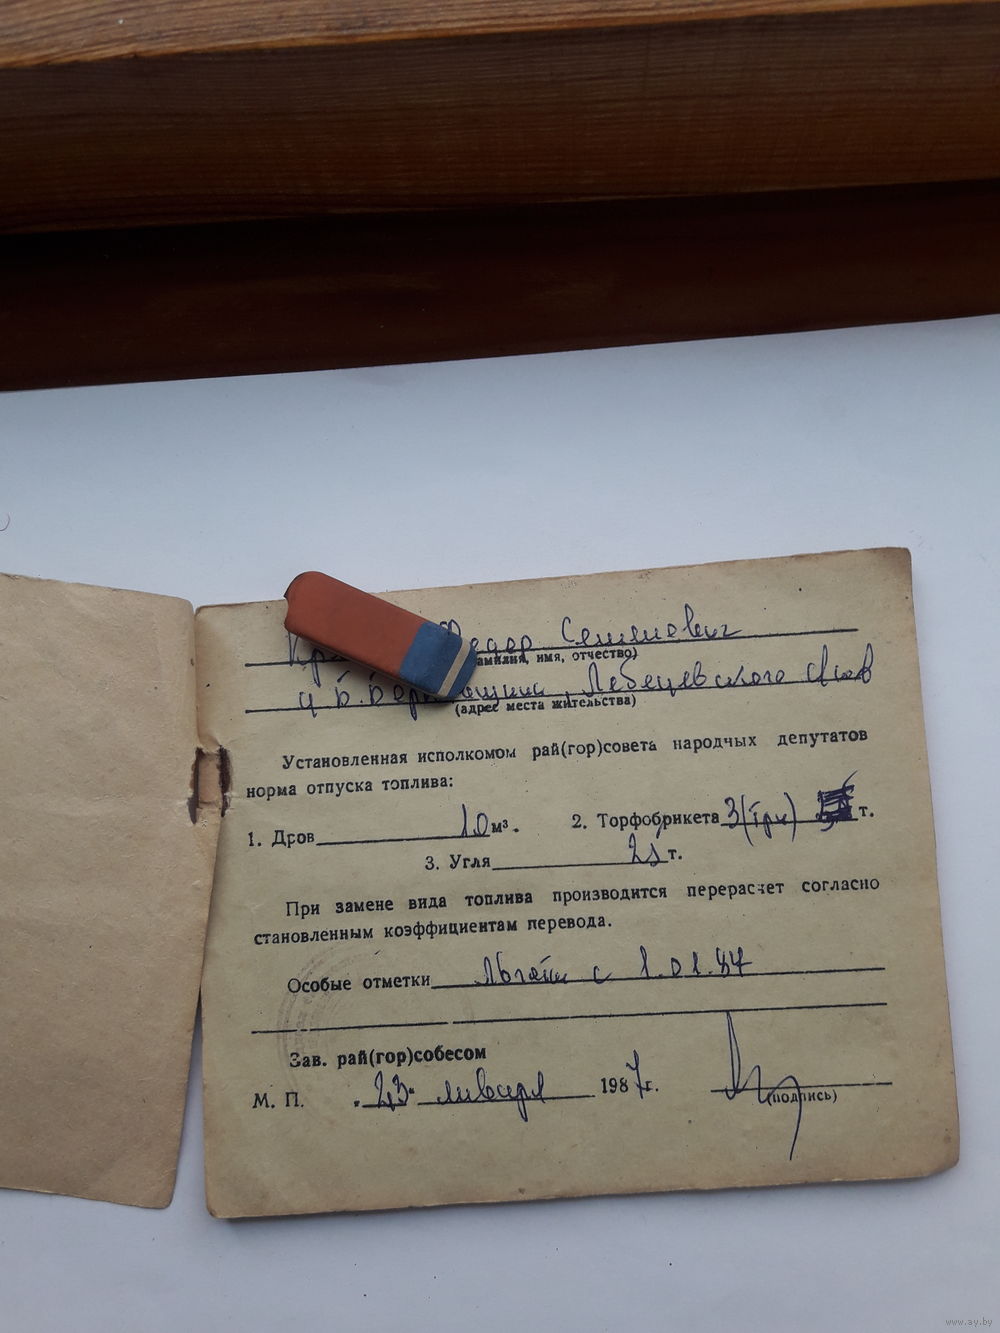 Федор Семенович
амилия, имя, отчество)
(адрес места жительства)
Установленная исполкомом рай(гор)совета народных депутатов
норма отпуска топлива:
1. Дров 10 м³. 2. Торфобрикета 3 (три) т.
3. Угля т.
При замене вида топлива производится перерасчет согласно
становленным коэффициентам перевода.
Особые отметки с 1.01.87
Зав. рай(гор)собесом
М. П. „23" января 1987 г. (подпись)
www.ay.by